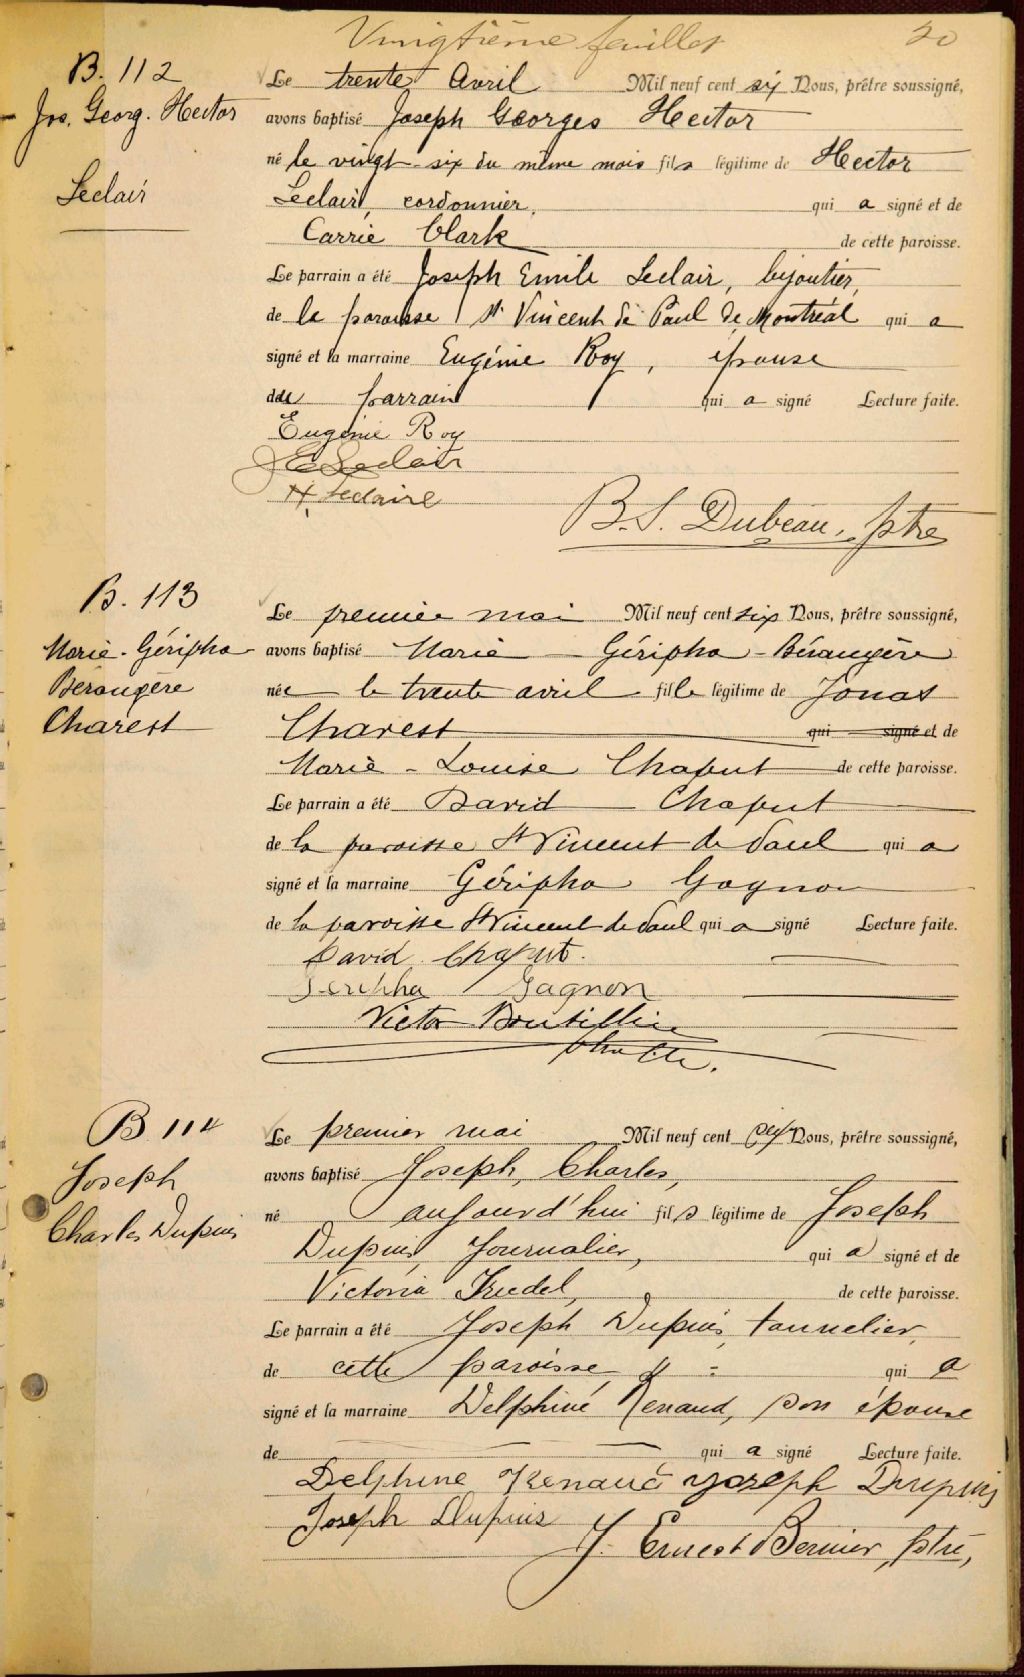 Vingtième feuillet 20
B. 112
Jos. Georg. Hector
Leclair
Le trente Avril Mil neuf cent six Nous, prêtre soussigné,
avons baptisé Joseph Georges Hector
né le vingt-six du même mois fils légitime de Hector
Leclair, cordonnier, qui a signé et de
Carrie Clark de cette paroisse.
Le parrain a été Joseph Emile Leclair, bijoutier,
de la paroisse St Vincent de Paul de Montréal qui a
signé et la marraine Eugénie Roy, épouse
du parrain qui a signé Lecture faite.
Eugénie Roy
J E Leclair
H. Leclaire
B. S. Dubeau, ptre
B. 113
Marie-Géripha
Bérangère
Charest
Le premier mai Mil neuf cent six Nous, prêtre soussigné,
avons baptisé Marie Géripha-Bérangère
née le trente avril fille légitime de Jonas
Charest qui signé et de
Marie-Louise Chaput de cette paroisse.
Le parrain a été David Chaput
de la paroisse St Vincent de Paul qui a
signé et la marraine Géripha Gagnon
de la paroisse St Vincent de Paul qui a signé Lecture faite.
David Chaput.
Geripha Gagnon
Victor
B 114
Joseph
Charles Dupuis
Le premier mai Mil neuf cent six Nous, prêtre soussigné,
avons baptisé Joseph, Charles,
né aujourd'hui fils légitime de Joseph
Dupuis, Journalier, qui a signé et de
Victoria Trudel, de cette paroisse.
Le parrain a été Joseph Dupuis, tonnelier,
de cette paroisse qui a
signé et la marraine Delphine Renaud, son épouse
de qui a signé Lecture faite.
Delphine Renaud Joseph Dupuis
Joseph Dupuis
J. Ernest Bernier, ptre,